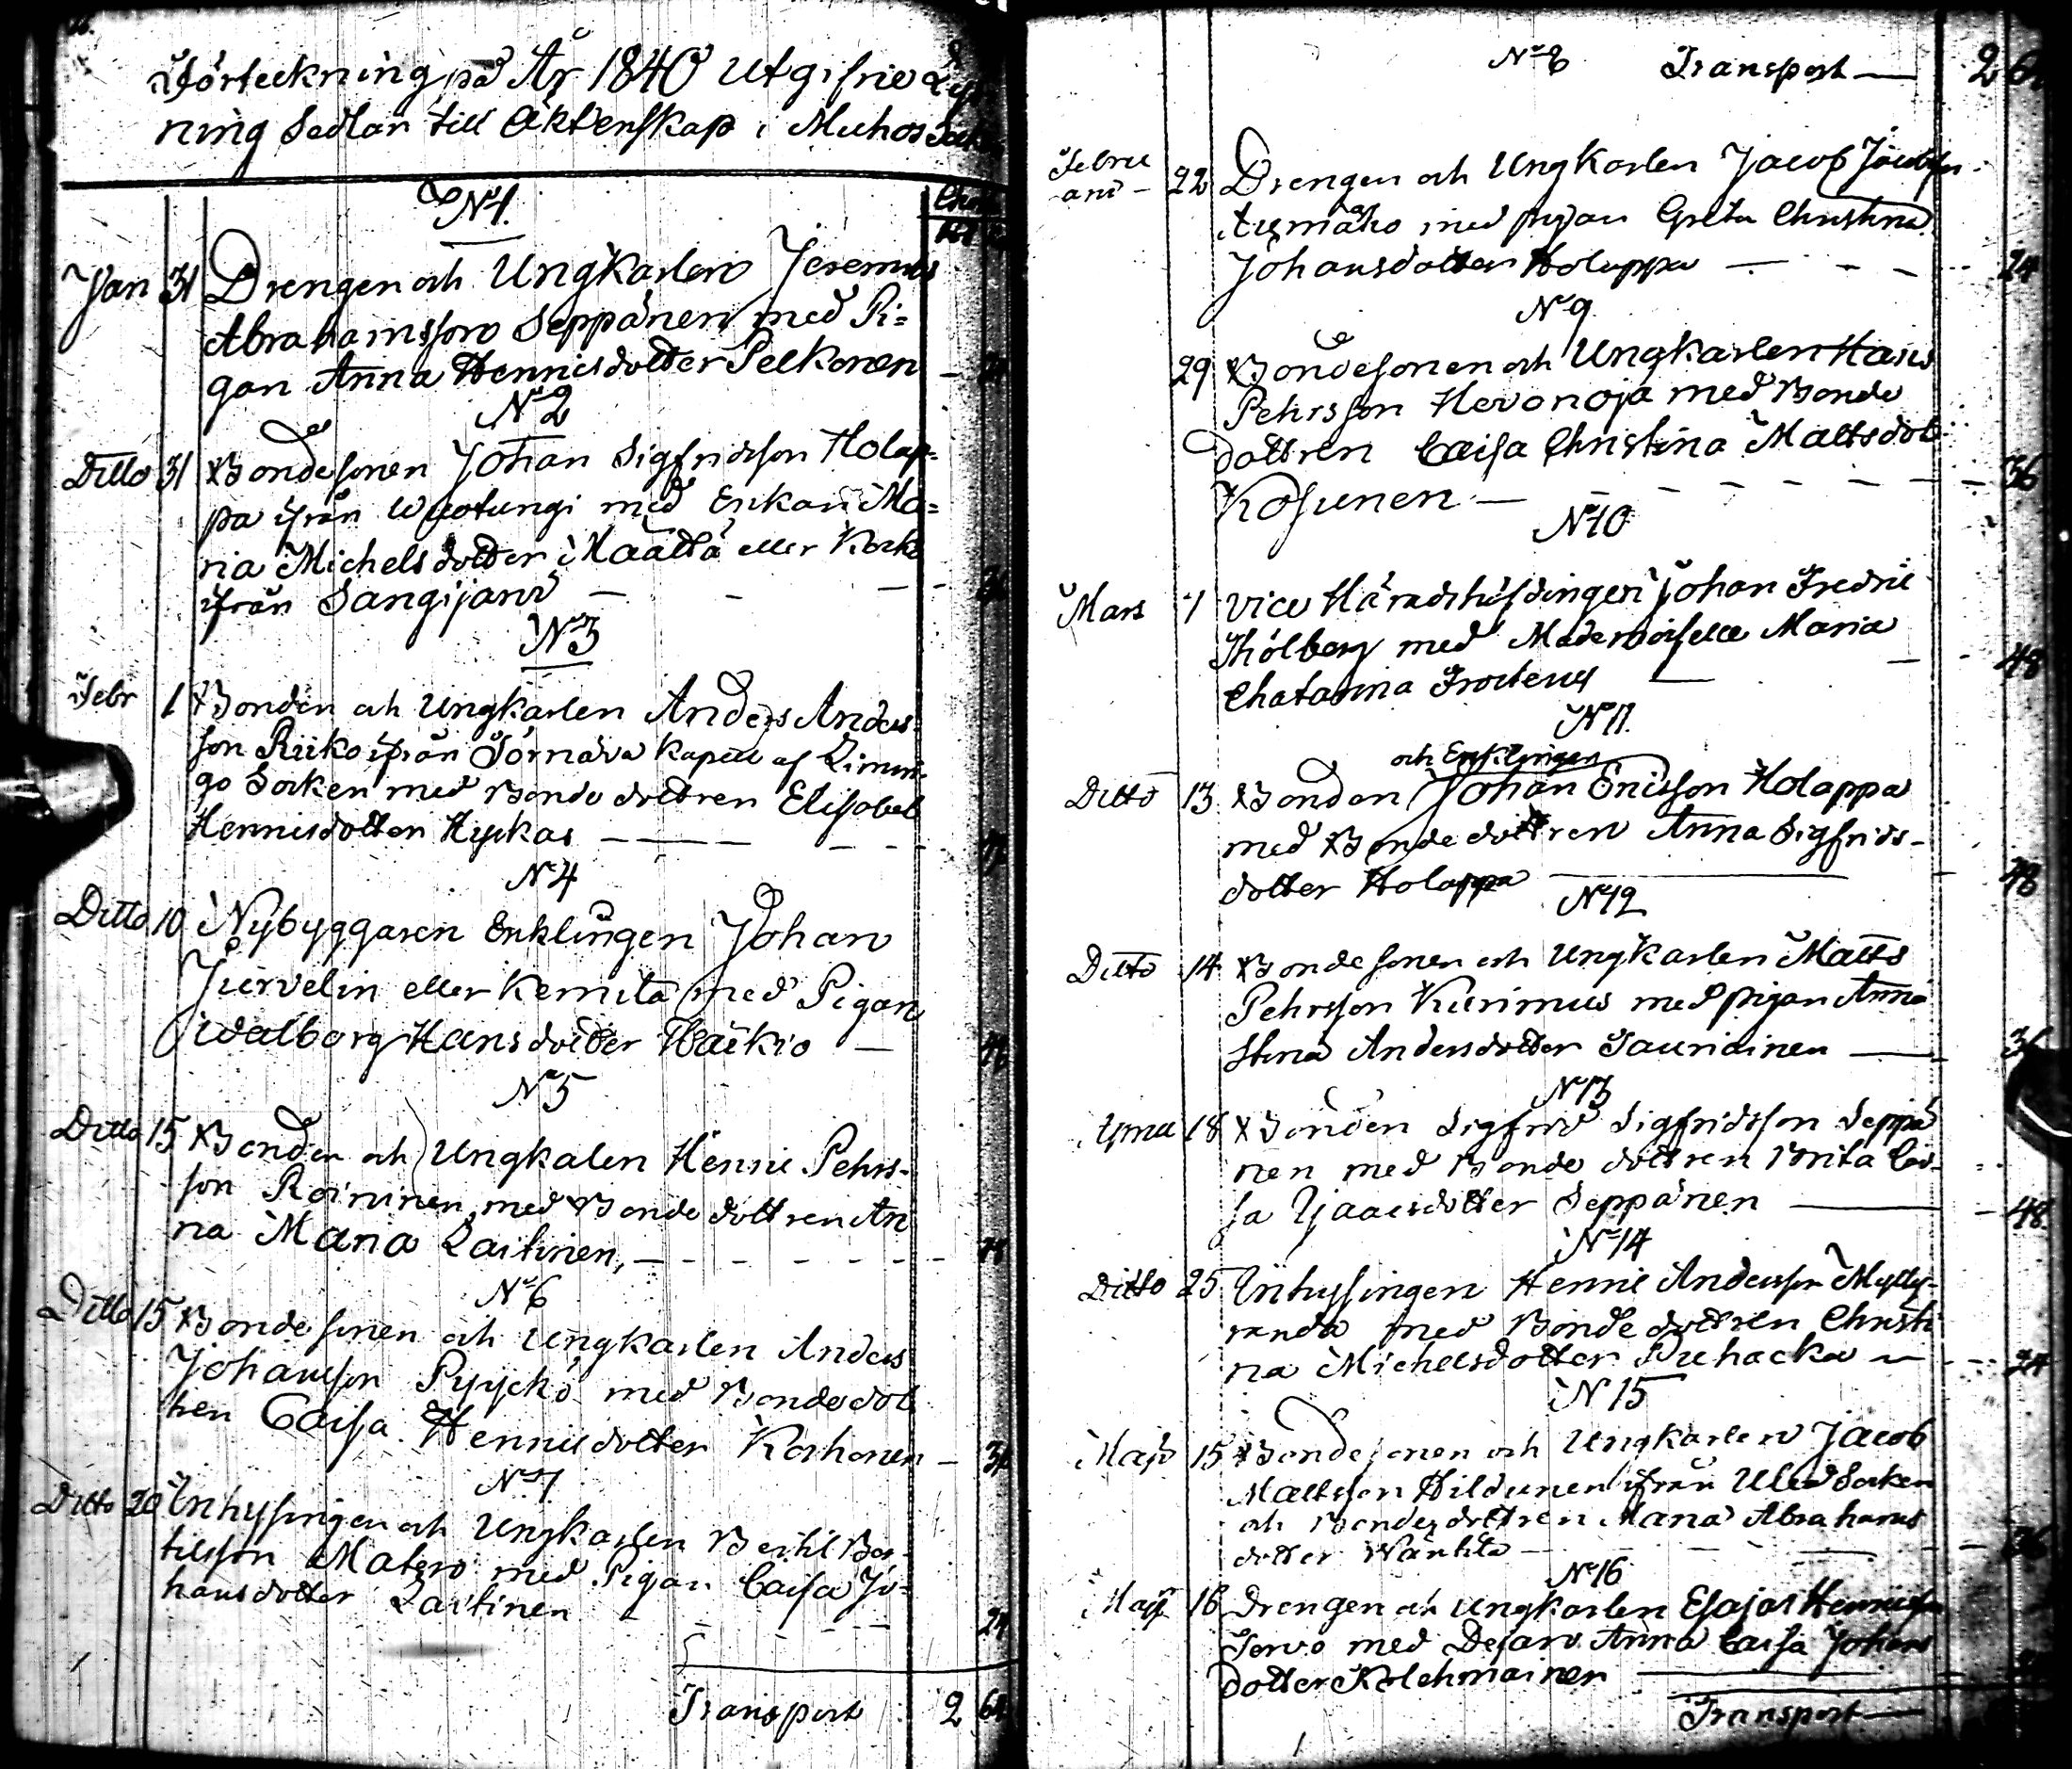 Förteckning på År 1840 utgifne Lys
ning Sedlar till Äktenskap i Muhos Sock
N 1.
Jan 31 Drengen och Ungkarlen Jeremias
Abrahamsson Seppänen med Pi=
gan Anna Hennicsdotter Pelkonen
N 2
Ditto 31 Bondesonen Johan Sigfridsson Holap=
pa ifrån med Enkan Ma=
ria Michelsdotter Määttä eller
ifrån Sangijarvi
N 3
Febr 1 Bonden och Ungkarlen Anders Anders
son Riiko ifrån Tyrnävä Kapell af Limin
go Socken med Bonde dottren Elisabet
Hennicsdotter Hyckas
N 4
Ditto 10 Nybyggaren Enklingen Johan
Jurvelin eller Kemilä med Pigan
Walborg Hansdotter
N 5
Ditto 15 Bonden och Ungkalen Henric Pehrs-
son Roininen med Bonde dottren An
na Maria Laitinen,
N 6
Ditto 15 Bondesonen och Ungkarlen Anders
Johansson Pyyckö med Bondedot
tren Caisa Henricsdotter Korhonen 36
N 7
Ditto 20 Inhysingen och Ungkarlen Bertil Ber-
tilsson Matero med Pigan Caisa Jo=
hansdotter Laitinen 24
Transport 2 64
N 8 Transport 2 64
Febru
ari 22 Drengen och Ungkarlen Jacob Jacobsson
med pigan Greta Christina
Johansdotter Holappa 24
N 9
29 Bondesonen och Ungkarlen Hans
Pehrsson Hevonoja med Bonde
dottren Caisa Christina Mattsdot
Kosunen 36
N 10
Mars 1 Vice Häradshöfdingen Johan Fredric
Thölberg med Mademoiselle Maria
Chatarina Frosterus 48
N 11.
och Enklingen
Ditto 13 Bonden Johan Ericsson Holappa
med Bonde dottren Anna Sigfrids-
dotter Holappa 48
N 12
Ditto 14 Bondesonen och Ungkarlen Matts
Pehrsson Kurimus med pigan Anna
Stina Andersdotter Tauriainen 36
N 13
18 Bonden Sigfrid Sigfridsson Seppä
nen med Bonde dottren Brita Cai-
sa Isaacsdotter Seppänen 48
N 14
Ditto 25 Inhysingen Henric Andersson Mylly-
randa med Bonde dottren Christi
na Michelsdotter Puhacka 24
N 15
Maji 15 Bondesonen och Ungkarlen Jacob
Mattsson Hildunen ifrån Uleå Socken
och Bonde dottren Maria Abrahams
dotter 36
N 16
Maji 16 Drengen och Ungkarlen Esajas Henricsson
Tervo med Anna Caisa Johans
dotter Kolehmainen
Transport